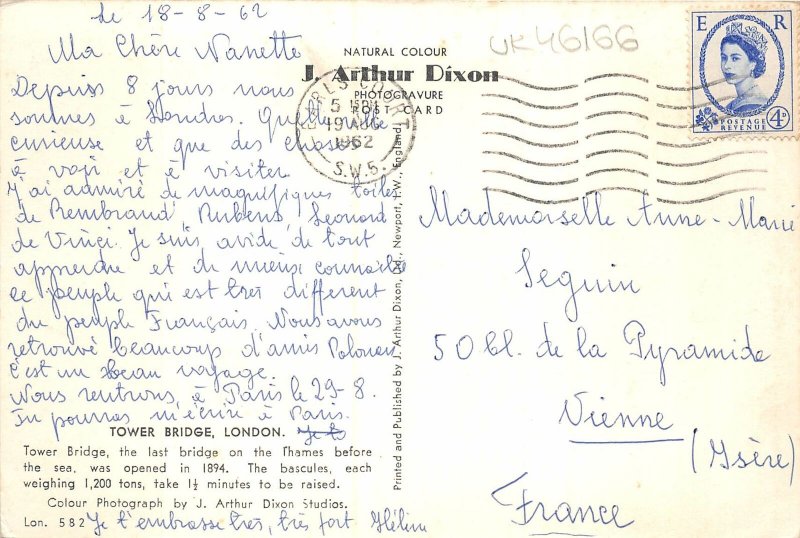 le 18-8-62
Ma Chère Nanette
Depuis 8 jours nous
sommes à Londres. Quelle ville
curieuse et que des choses
à voir et à visiter
J'ai admiré de magnifiques toiles
de Rembrand, Rubens, Leonard
de Vinci. Je suis avide de tout
apprendre et de mieux connaître
ce peuple qui est très différent
du peuple Français. Nous avons
retrouvé beaucoup d'amis Polonais
C'est un beau voyage.
Nous rentrons à Paris le 29-8.
Tu pourras m'écrire à Paris.
TOWER BRIDGE, LONDON.
Tower Bridge, the last bridge on the Thames before
the sea, was opened in 1894. The bascules, each
weighing 1,200 tons, take 1½ minutes to be raised.
Colour Photograph by J. Arthur Dixon Studios.
Lon. 582
Je t'embrasse très, très fort Hélène
NATURAL COLOUR
J. Arthur Dixon
PHOTOGRAVURE
POST CARD
Printed and Published by J. Arthur Dixon, Ltd., Newport, I.W., England.
UK46166
EARLS COURT
5 PM
19 AUG
1962
S.W.5.
E R
POSTAGE
REVENUE
4D
Mademoiselle Anne-Marie
Seguin
50 bl. de la Pyramide
Vienne
(Isère)
France